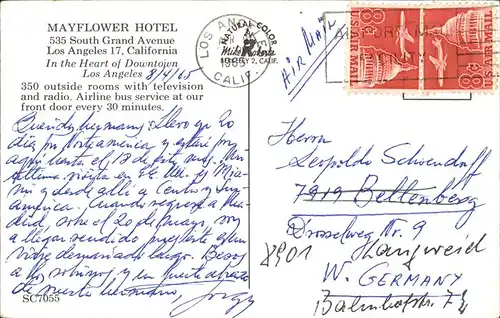 MAYFLOWER HOTEL
535 South Grand Avenue
Los Angeles 17, California
In the Heart of Downtown
Los Angeles 8/4/65
350 outside rooms with television
and radio. Airline bus service at our
front door every 30 minutes.
Querido hermano: Llevo ya 20
días por Norteamérica y estaré por
aquí hasta el 13 de este mes. Mi
última visita en EE.UU. es Mia-
mi y desde allí a Centro y Sur-
américa. Cuando regrese a Ma-
drid, sobre el 20 de mayo, voy
a llegar rendido puesto que es un
viaje demasiado largo. Besos
a los sobrinos y un fuerte abrazo
de vuestro hermano, Jorge
SC7055
NATURAL COLOR
Mike Roberts
BERKELEY 2, CALIF.
LOS ANGELES
1965
CALIF.
AIR MAIL
8¢
US AIR MAIL
8¢
US AIR MAIL
Herrn
Leopoldo Schwendorf
7919 Bellenberg
Drosselweg Nr. 9
8901 Langweid
W. GERMANY
Bahnhofstr.